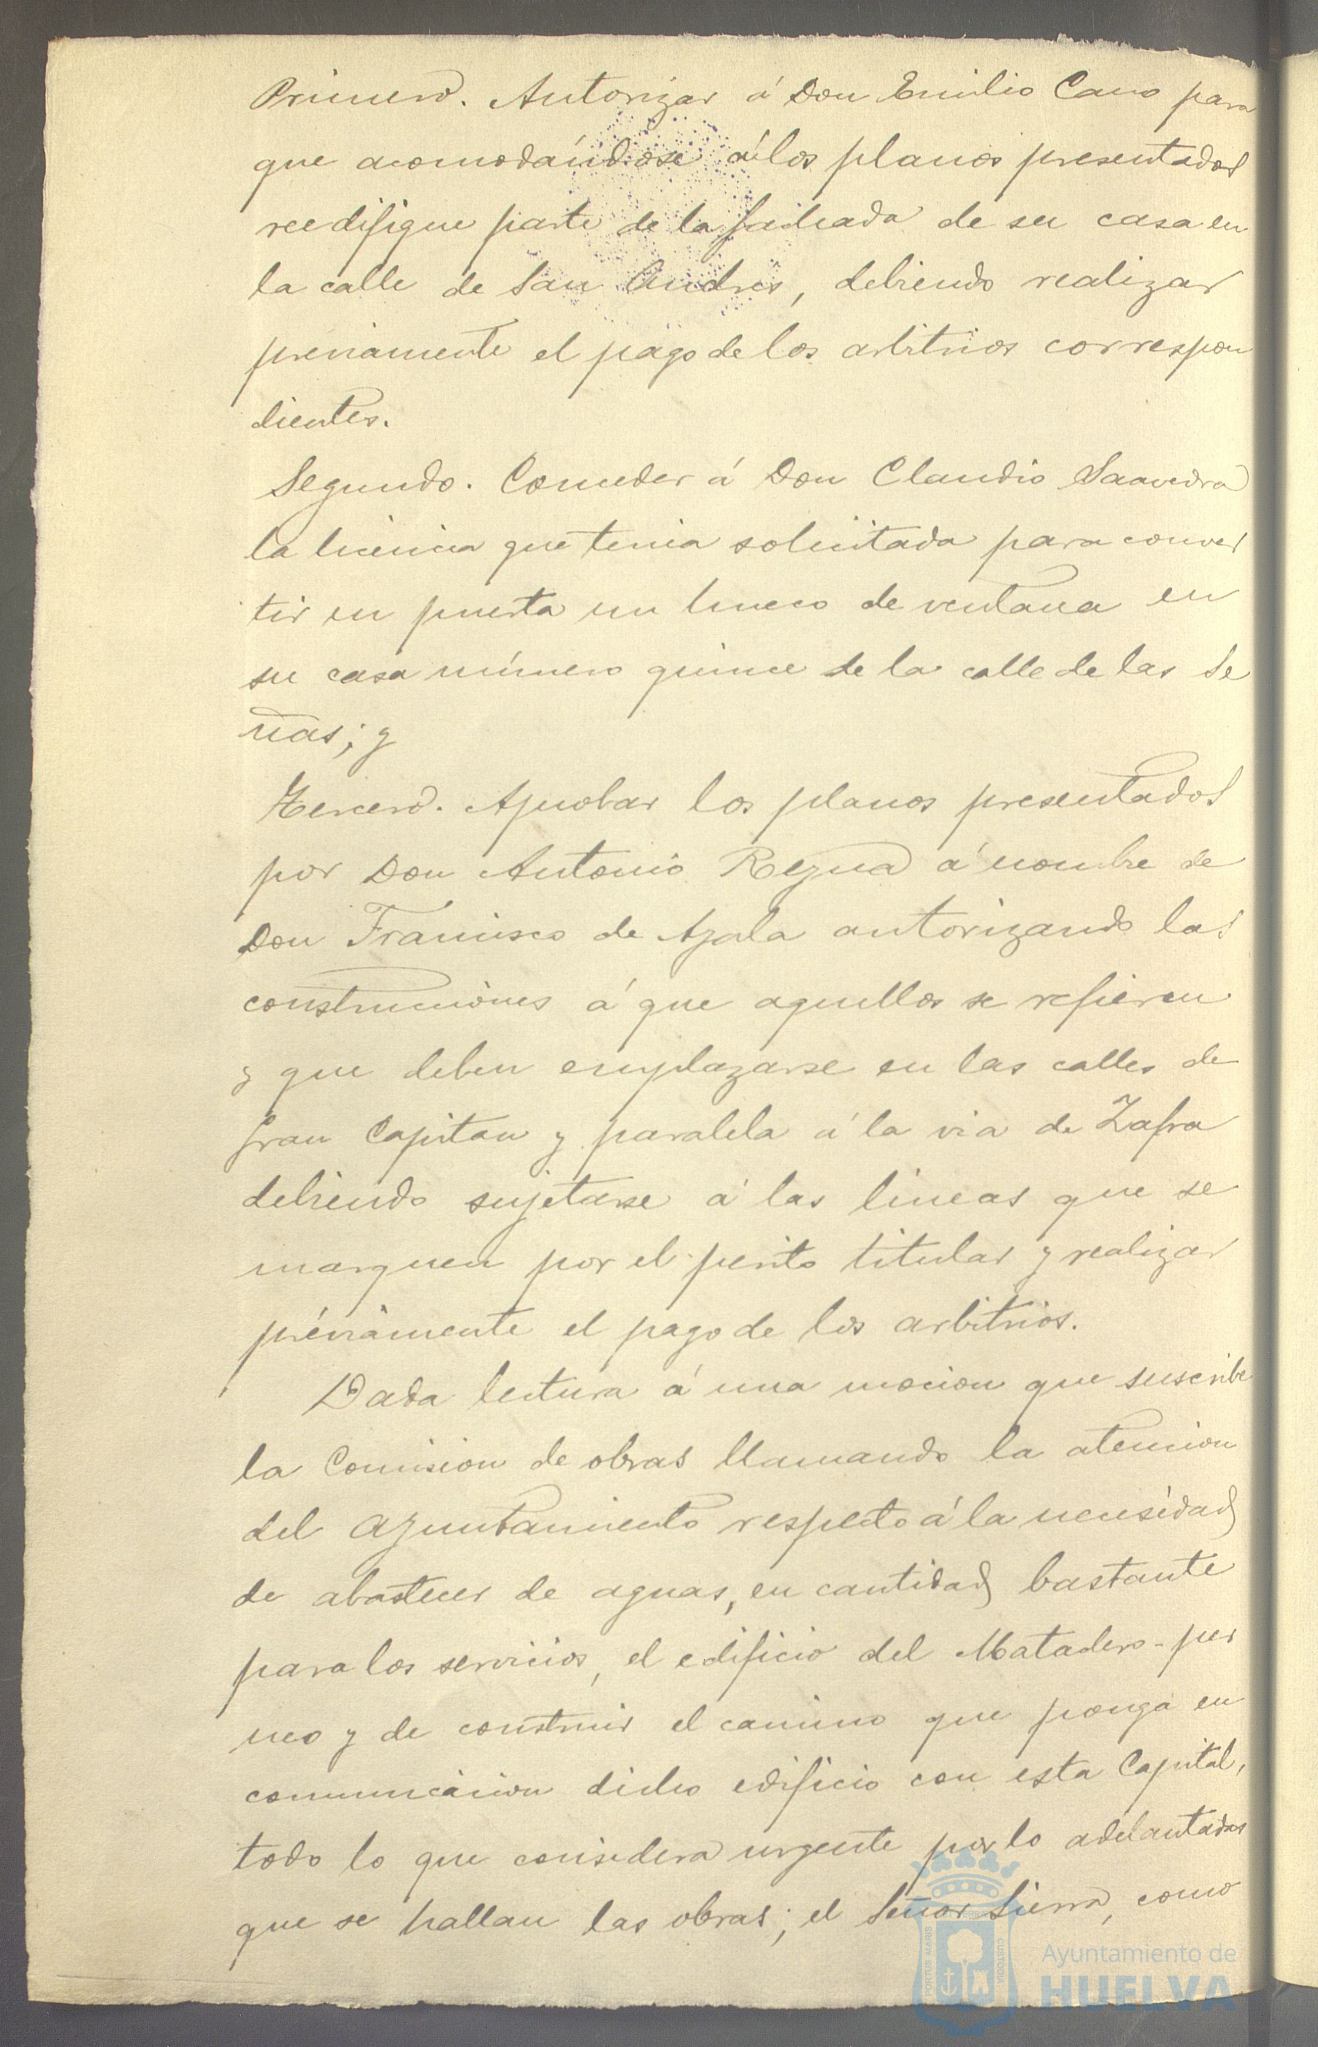 Primero. Autorizar á Don Emilio Cano para
que acomodándose á los planos presentados
reedifique parte de la fachada de su casa en
la calle de San Andres, debiendo realizar
previamente el pago de los arbitrios correspon
dientes.
Segundo. Conceder á Don Claudio Saavedra
la licencia que tenia solicitada para conver
tir en puerta un hueco de ventana en
su casa número quince de la calle de las Se
ñas; y
Tercero. Aprobar los planos presentados
por Don Antonio á nombre de
Don Francisco de Ayala autorizando las
construcciónes á que aquellos se refieren
y que deben emplazarse en las calles de
Gran Capitan y paralela á la via de Zafra
debiendo sujetarse á las lineas que se
marquen por el perito titular y realizar
préviamente el pago de los arbitrios.
Dada lectura á una mocion que suscribe
la Comision de obras llamando la atencion
del Ayuntamiento respecto á la necesidad
de abastecer de aguas, en cantidad bastante
para los servicios, el edificio del Matadero-per
neo y de construir el camino que ponga en
comunicacion dicho edificio con esta Capital,
todo lo que considera urgente por lo adelantadas
que se hallan las obras; el Señor Sierra, como
Ayuntamiento de
HUELVA